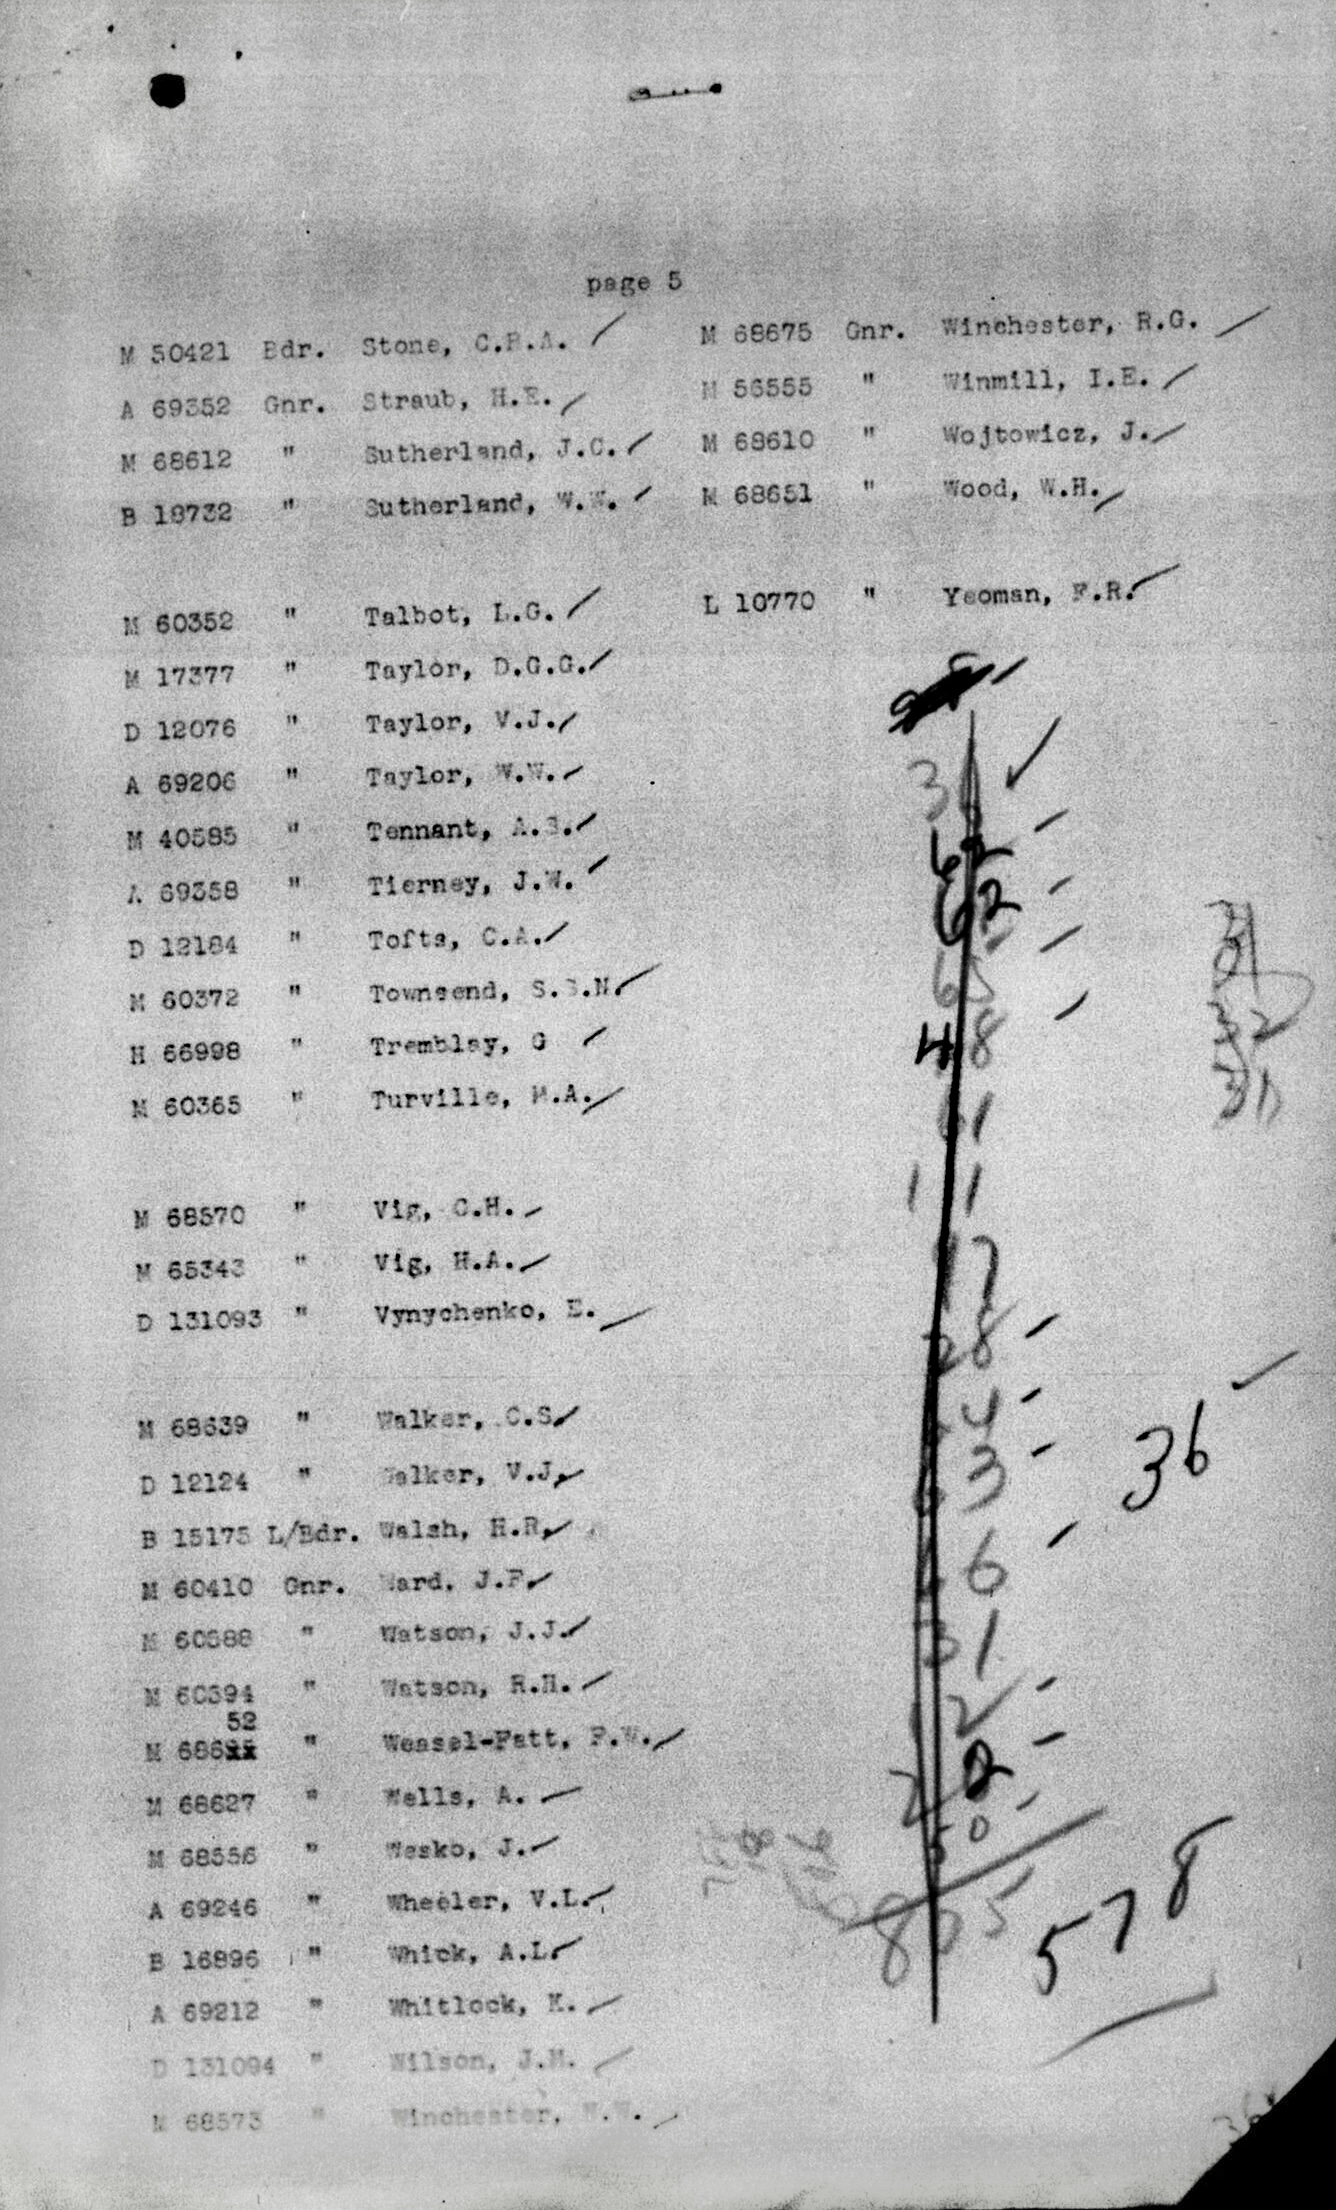 page 5
M 50421 Bdr. Stone, C.R.A.
A 69352 Gnr. Straub, H.E.
M 68612 " Sutherland, J.C.
B 18732 " Sutherland, W.W.
M 60352 " Talbot, L.G.
M 17377 " Taylor, D.G.G.
D 12076 " Taylor, V.J.
A 69206 " Taylor, W.W.
M 40585 " Tennant,
A 69358 " Tierney, J.W.
D 12184 " Tofts, C.A.
M 60372 " Townsend,
H 66998 " Tremblay, G
M 60365 " Turville, M.A.
M 68570 " Vig, C.H.
M 65343 " Vig, H.A.
D 131093 " Vynychenko, E.
M 68639 " Walker, C.S.
D 12124 " Walker, V.J.
B 15175 L/Bdr. Walsh, H.R.
M 60410 Gnr. Ward, J.F.
M " Watson, J.J.
M 60394 " Watson, R.H.
52
M 686xx " Weasel-Fatt, F.W.
M 68627 " Wells, A.
M 68556 " Wesko, J.
A 69246 " Wheeler, V.L.
B 16896 " Whick, A.L.
A 69212 " Whitlock, K.
D 131094 " Wilson, J.M.
M 68573 " Winchester, W.W.
M 68675 Gnr. Winchester, R.G.
M 56555 " Winmill, I.E.
M 68610 " Wojtowicz, J.
M 68651 " Wood, W.H.
L 10770 " Yeoman, F.R.
62
48
11
17
28
36
578